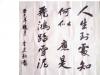 人生到處知
何似應是
飛鴻踏雪泥